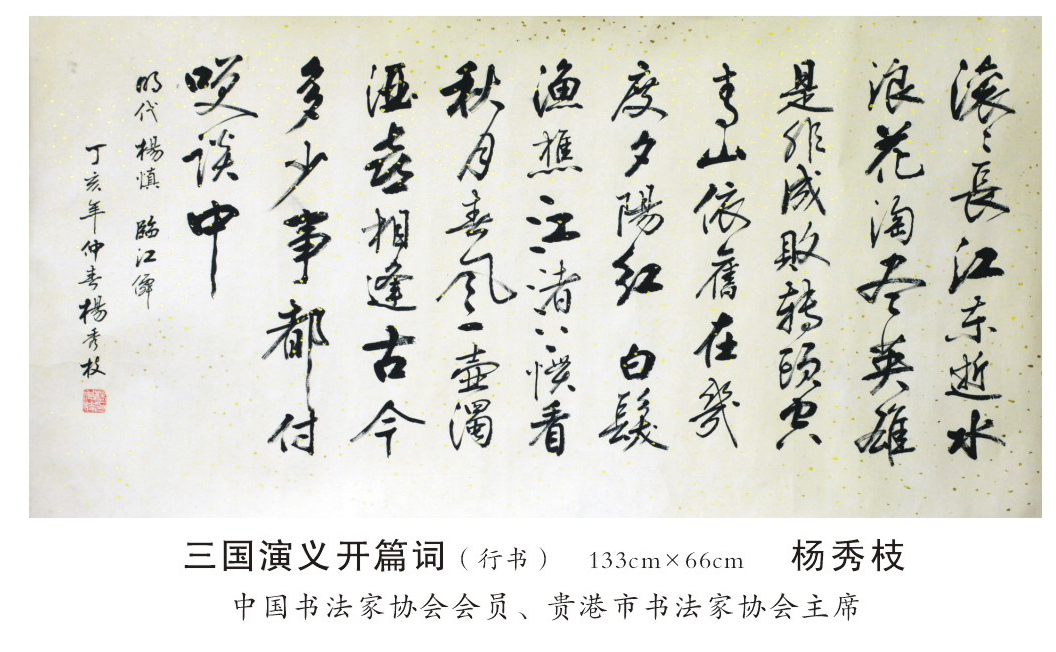 滚滚長江东逝水
浪花淘尽英雄
是非成败转頭空
青山依舊在幾
度夕陽红 白髮
渔樵江渚上惯看
秋月春风一壶濁
酒喜相逢古今
多少事都付
笑谈中
明代楊慎 臨江僊
丁亥年仲春楊秀枝
三国演义开篇词（行书） 133cm×66cm 杨秀枝
中国书法家协会会员、贵港市书法家协会主席